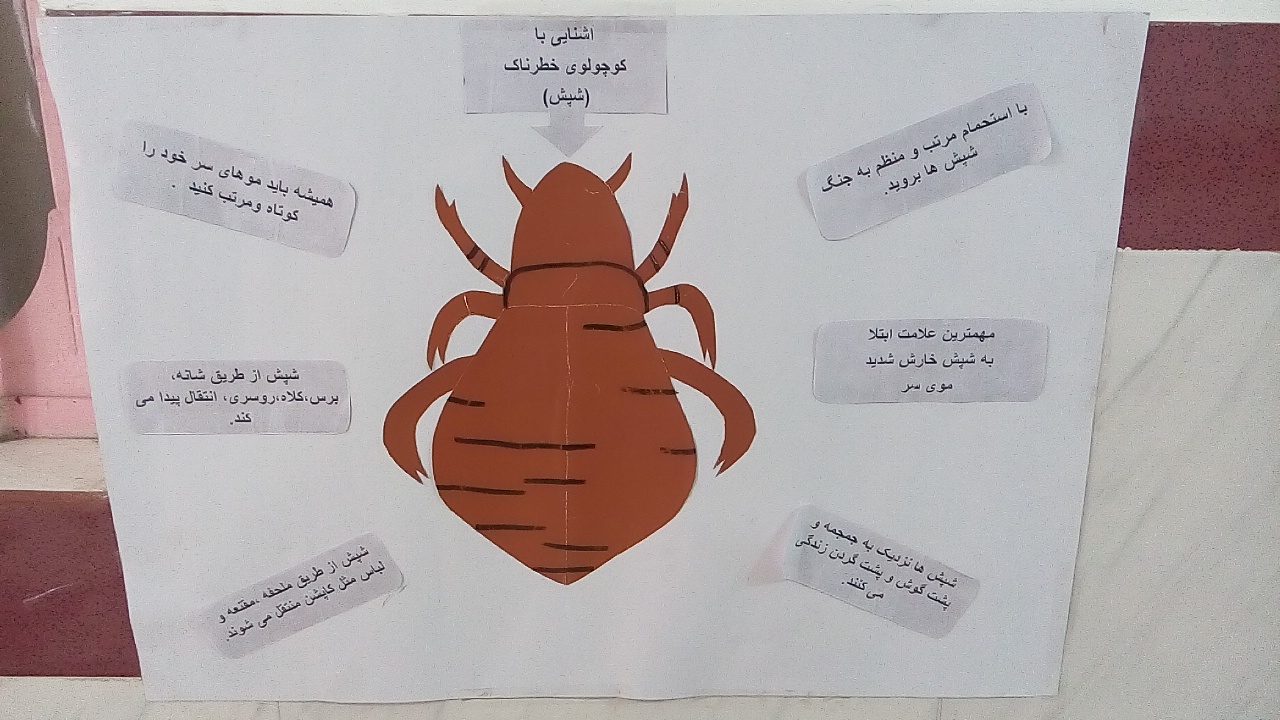 اشنایی با
کوچولوی خطرناک
(شپش)
با استحمام مرتب و منظم به جنگ
شپش ها بروید.
همیشه باید موهای سر خود را
کوتاه ومرتب کنید .
مهمترین علامت ابتلا
به شپش خارش شدید
موی سر
شپش از طریق شانه،
برس،کلاه،روسری، انتقال پیدا می
کند.
شپش ها نزدیک به جمجمه و
پشت گوش و پشت گردن زندگی
می کنند.
شپش از طریق ملحفه ،مقنعه و
لباس مثل کاپشن منتقل می شوند.